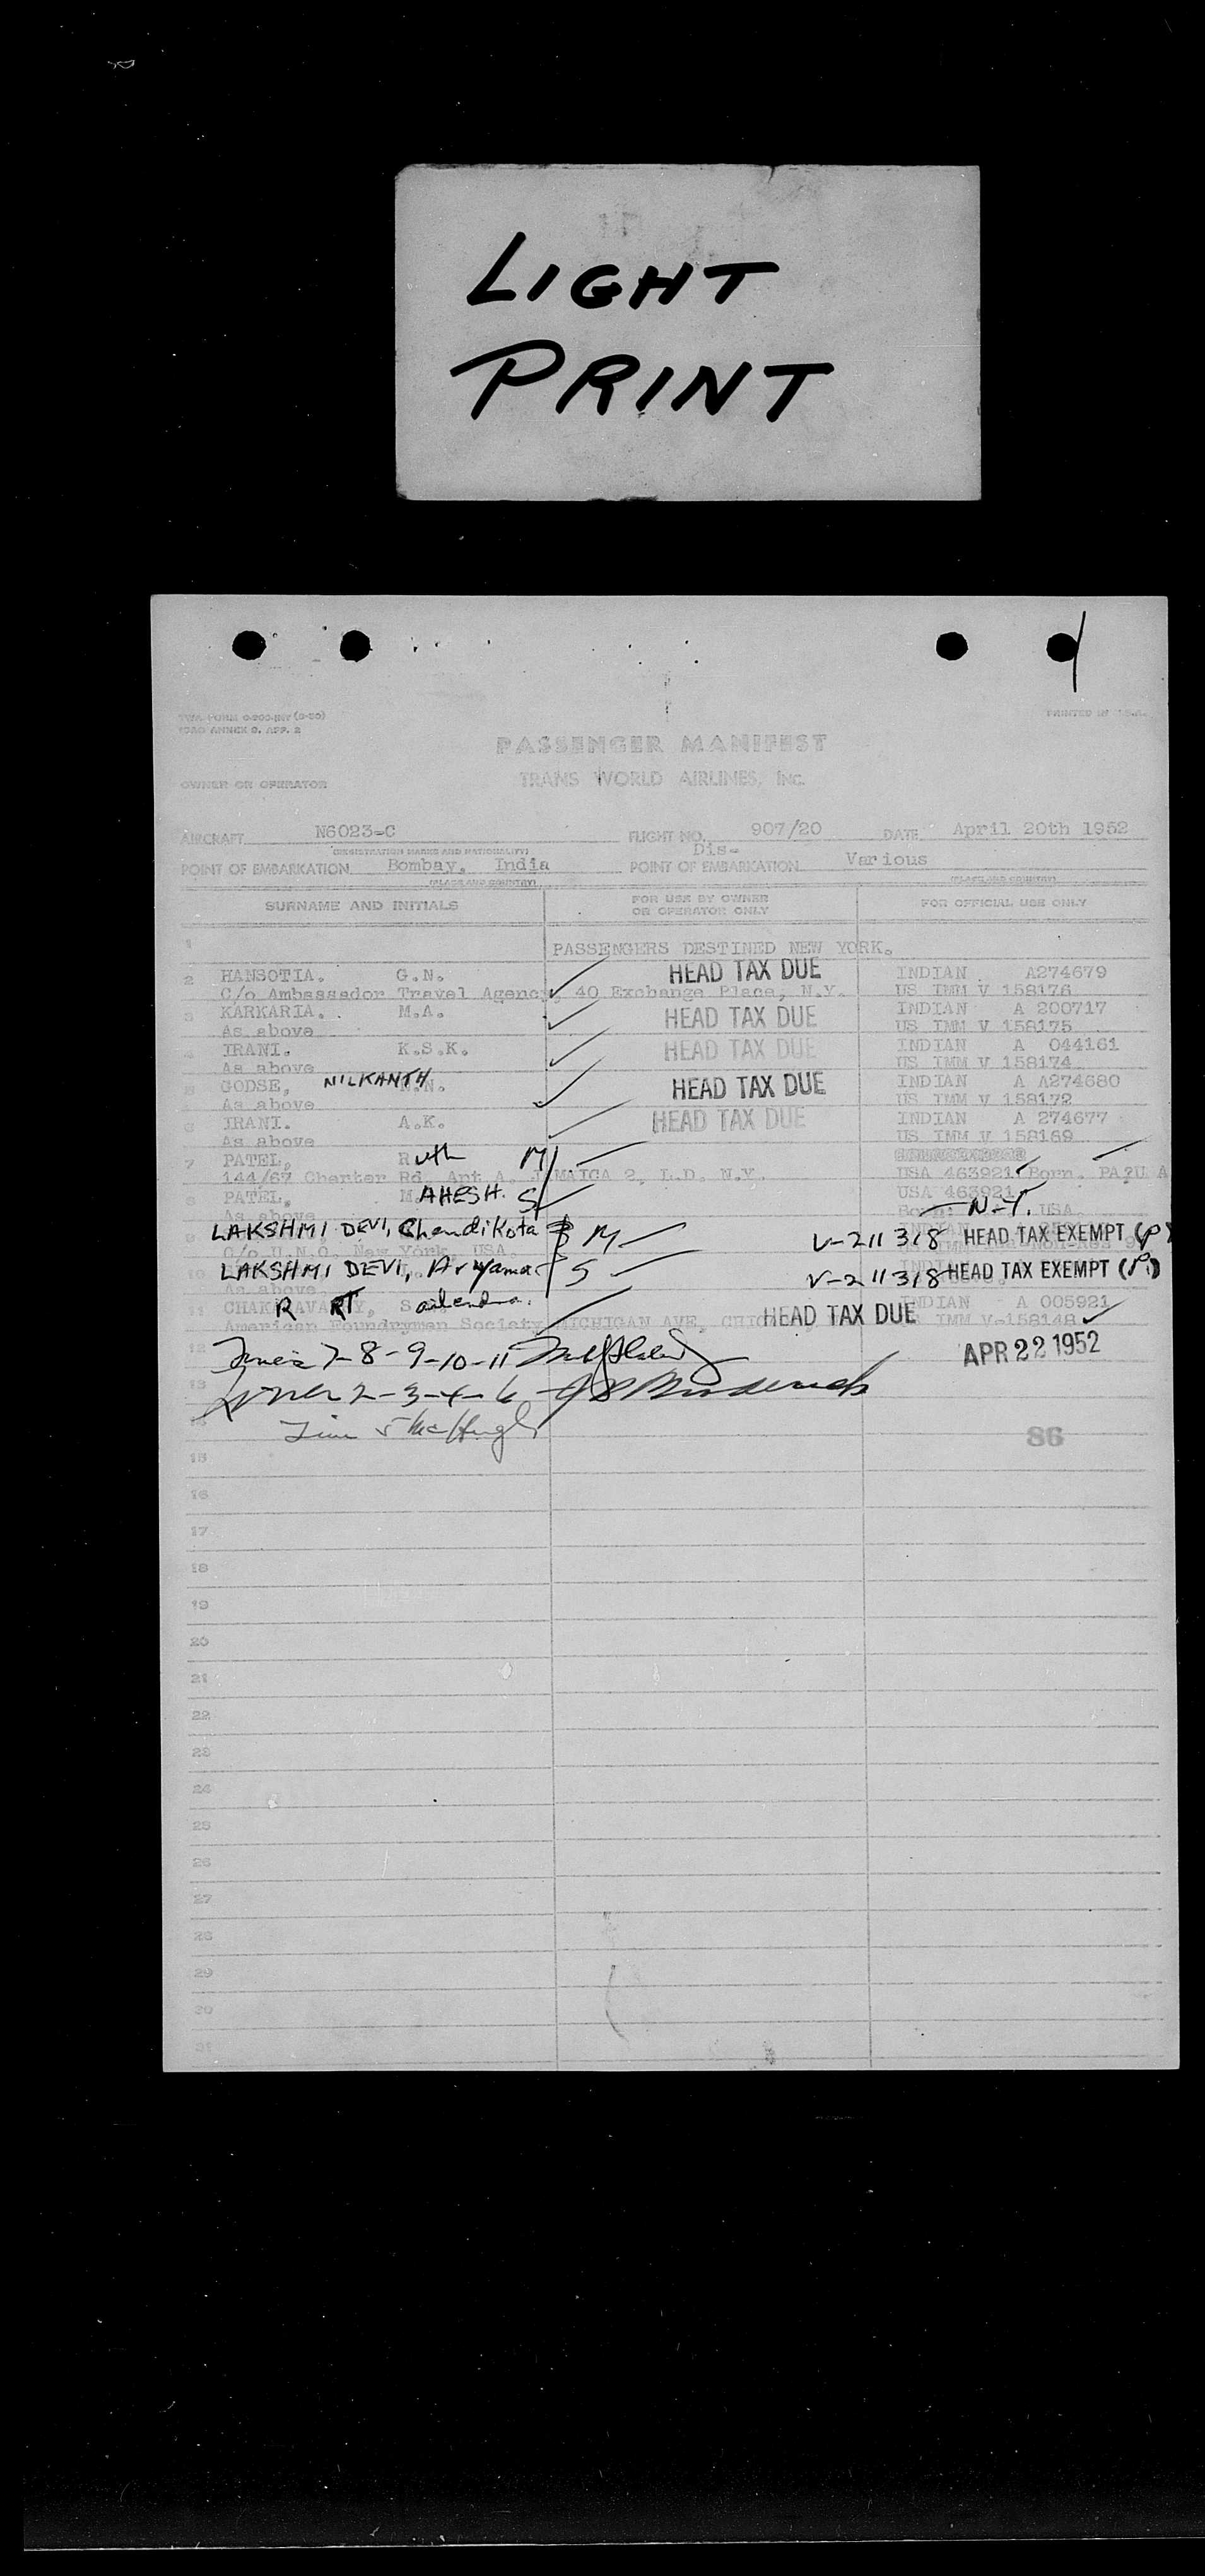 LIGHT
PRINT
PRINTED IN U.S.A.
PASSENGER MANIFEST
OWNER OR OPERATOR TRANS WORLD AIRLINES, INC.
AIRCRAFT N6023-C FLIGHT NO. 907/20 DATE April 20th 1952
(REGISTRATION MARKS AND NATIONALITY) Dis-
POINT OF EMBARKATION Bombay, India POINT OF EMBARKATION Various
(PLACE AND COUNTRY) (PLACE AND COUNTRY)
SURNAME AND INITIALS FOR USE BY OWNER OR OPERATOR ONLY FOR OFFICIAL USE ONLY
1 PASSENGERS DESTINED NEW YORK.
2 HANSOTIA. G.N. HEAD TAX DUE INDIAN A274679
C/o Ambassador Travel Agency, 40 Exchange Place, N.Y. US IMM V 158176
3 KARKARIA. M.A. HEAD TAX DUE INDIAN A 200717
As above US IMM V 158175
4 IRANI. K.S.K. HEAD TAX DUE INDIAN A 044161
As above US IMM V 158174
5 GODSE, NILKANTH N. HEAD TAX DUE INDIAN A A274680
As above US IMM V 158172
6 IRANI. A.K. HEAD TAX DUE INDIAN A 274677
As above US IMM V 158169
7 PATEL, Ruth M
144/67 Charter Rd. Apt A. JAMAICA 2, L.D. N.Y. USA 463921 Born.
8 PATEL, MAHESH. S USA 463921
As above Born: N.Y. USA.
9 LAKSHMI DEVI, Chandikota M V-211318 HEAD TAX EXEMPT (P)
C/o U.N.O. New York, USA.
10 LAKSHMI DEVI, Aryama S V-211318 HEAD TAX EXEMPT (P)
As above
11 CHAKRAVARTY, S ailendra. R RT HEAD TAX DUE INDIAN A 005921
American Foundrymen Society MICHIGAN AVE, US IMM V-158148
12 7-8-9-10-11 APR 22 1952
13 2-3-4-6
14 Line 5 McHugh
86
15
16
17
18
19
20
21
22
23
24
25
26
27
28
29
30
31